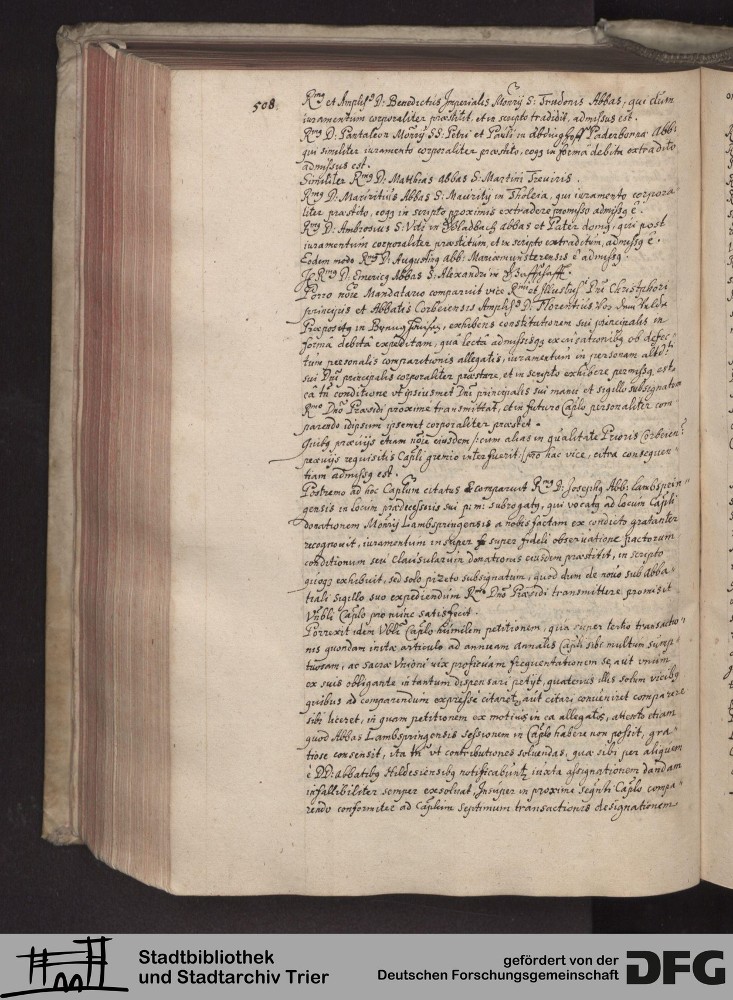 508.
R.mg et Ampliss.g D: Benedictus Imperialis Monrÿ S: Trudonis Abbas, qui dum
iuramentum corporaliter præstitit, et in scripto tradidit, admissus est.
R.mg D: Pantaleon Monrÿ SS: Petri et Pauli in Paderbonna Abb:
qui similiter iuramento corporaliter præstito, eoq in forma debita extradito
admissus est.
Similiter R.mg D: Matthias abbas S: Martini Treuiris.
R.mg D: Mauritius Abbas S: Mauritÿ in Tholeia, qui iuramento corpora"
liter præstito, eoq in scripto proximis extradere promisso admissg ē.
R.mg D: Ambrosius S: Viti in Gladbach abbas et Pater domg, qui post
iuramentum corporaliter præstitum, et in scripto extraditum, admissg ē.
Eodem modo R.mg D: Augusting abb: Mariæmunsterensis ē admissg.
It R.mg D: Emericg Abbas S: Alexandri in
Porro noīe Mandatario comparuit vice R.mi et Illustriss.i Dnī Christophori
principis et Abbatis Corbeiensis Ampliss.g D: Florentius Von dem Velda
Præpositg in exhibens constitutorem sui principalis in
forma debita expeditam, qua lecta admissisqg excusationibg ob defec"
tum personalis comparitionis allegatis, iuramentum in personam altè
sui Dnī principalis corporaliter præstare, et in scripto exhibere permissg, esto
ea tn̄ conditione vt ipsiusmet Dnī principalis sui manu et sigillo subsignatum
R.mo Dno Præsidi proxime transmittat, et in futuro Caplo personaliter com"
parendo idipsum ipsemet corporaliter præstet.
Quibg præuijs etiam noīe eiusdem /:cum alias in qualitate Prioris Corbeien:
præuijs requisitis Capli gremio interfuerit:/ pro hac vice, citra consequen"
tiam admissg est.
Postremo ad hoc Caplum citatus & comparuit R.mg D: Josephg Abb: Lambsprin"
gensis in locum prædecessoris sui p: m: subrogatg, qui vocatg ad locum Capli
donationem Monrÿ Lambspringensis a nobis factam ex condicto gratanter
recognouit, iuramentum insuper super fideli obseruatione pactorum
conditionum seu clausularum donationis eiusdem præstitit, in scripto
quoqg exhibuit, sed solo pizeto subsignatum, quod dum de nouo sub abba"
tiali sigillo suo expediendum R.mo Dno Præsidi transmittere promisit
Vnbli Caplo pro nunc satisfecit.
Porrexit idem Vbli Caplo humilem petitionem, quia super tertio transactio"
nis quondam initæ articulo ad annuam annalis Capli sibi multum sump"
tuosam, ac sacræ Vnioni vix proficuam frequentationem se, aut vnum
ex suis obligante in tantum dispensari petijt, quatenus illis solum vicibg
quibus ad comparendum expresse citaretr, aut citari conueniret comparere
sibi liceret, in quam petitionem ex motiuis in ea allegatis, attento etiam
quod Abbas Lambspringensis sessionem in Caplo habere non possit, gra"
tiose consensit, ita tn̄ vt contributiones soluendas, quæ sibi per aliquem
è DD: abbatibg Hildesiensibg notificabuntr iuxta assignationem dandam
infallibiliter semper exsoluat. Insuper in proxime seqnti Caplo compa"
rendo conformiter ad Caplum septimum transactionis designationem
Stadtbibliothek
und Stadtarchiv Trier
gefördert von der
Deutschen Forschungsgemeinschaft
DFG